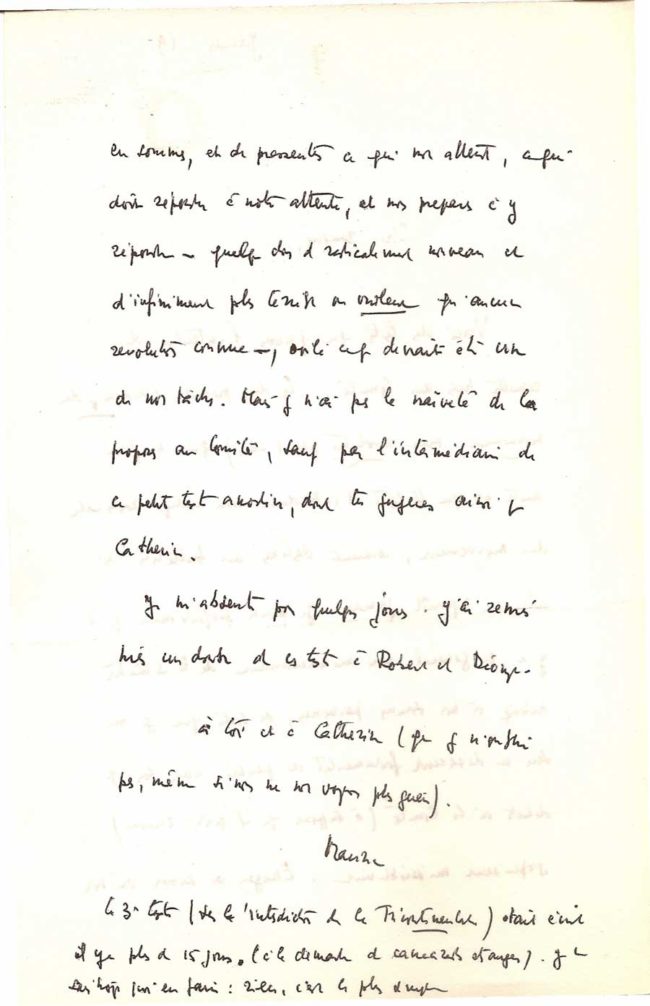 en somme, et de pressentir ce qui nous attend, ce qui
doit répondre à notre attente, et nous préparer à y
répondre — quelque chose de radicalement nouveau et
d'infiniment plus terrible ou violent qu'aucune
révolution connue —, voilà ce qui devrait être une
de nos tâches. Mais je n'ai pas la naïveté de le
proposer au Comité, sauf par l'intermédiaire de
ce petit texte anodin, dont tu jugeras ainsi que
Catherine.
Je m'absente pour quelques jours. J'ai remis
un double de ces textes à Robert et Dionys.
à toi et à Catherine (que je n'oublie
pas, même si nous ne nous voyons plus guère).
Maurice
Le 3e texte (sur l'interdiction de la Tricontinentale) était écrit
il y a plus de 15 jours. (à la demande de camarades étrangers). Je ne
sais trop qu'en faire : rien, c'est le plus simple